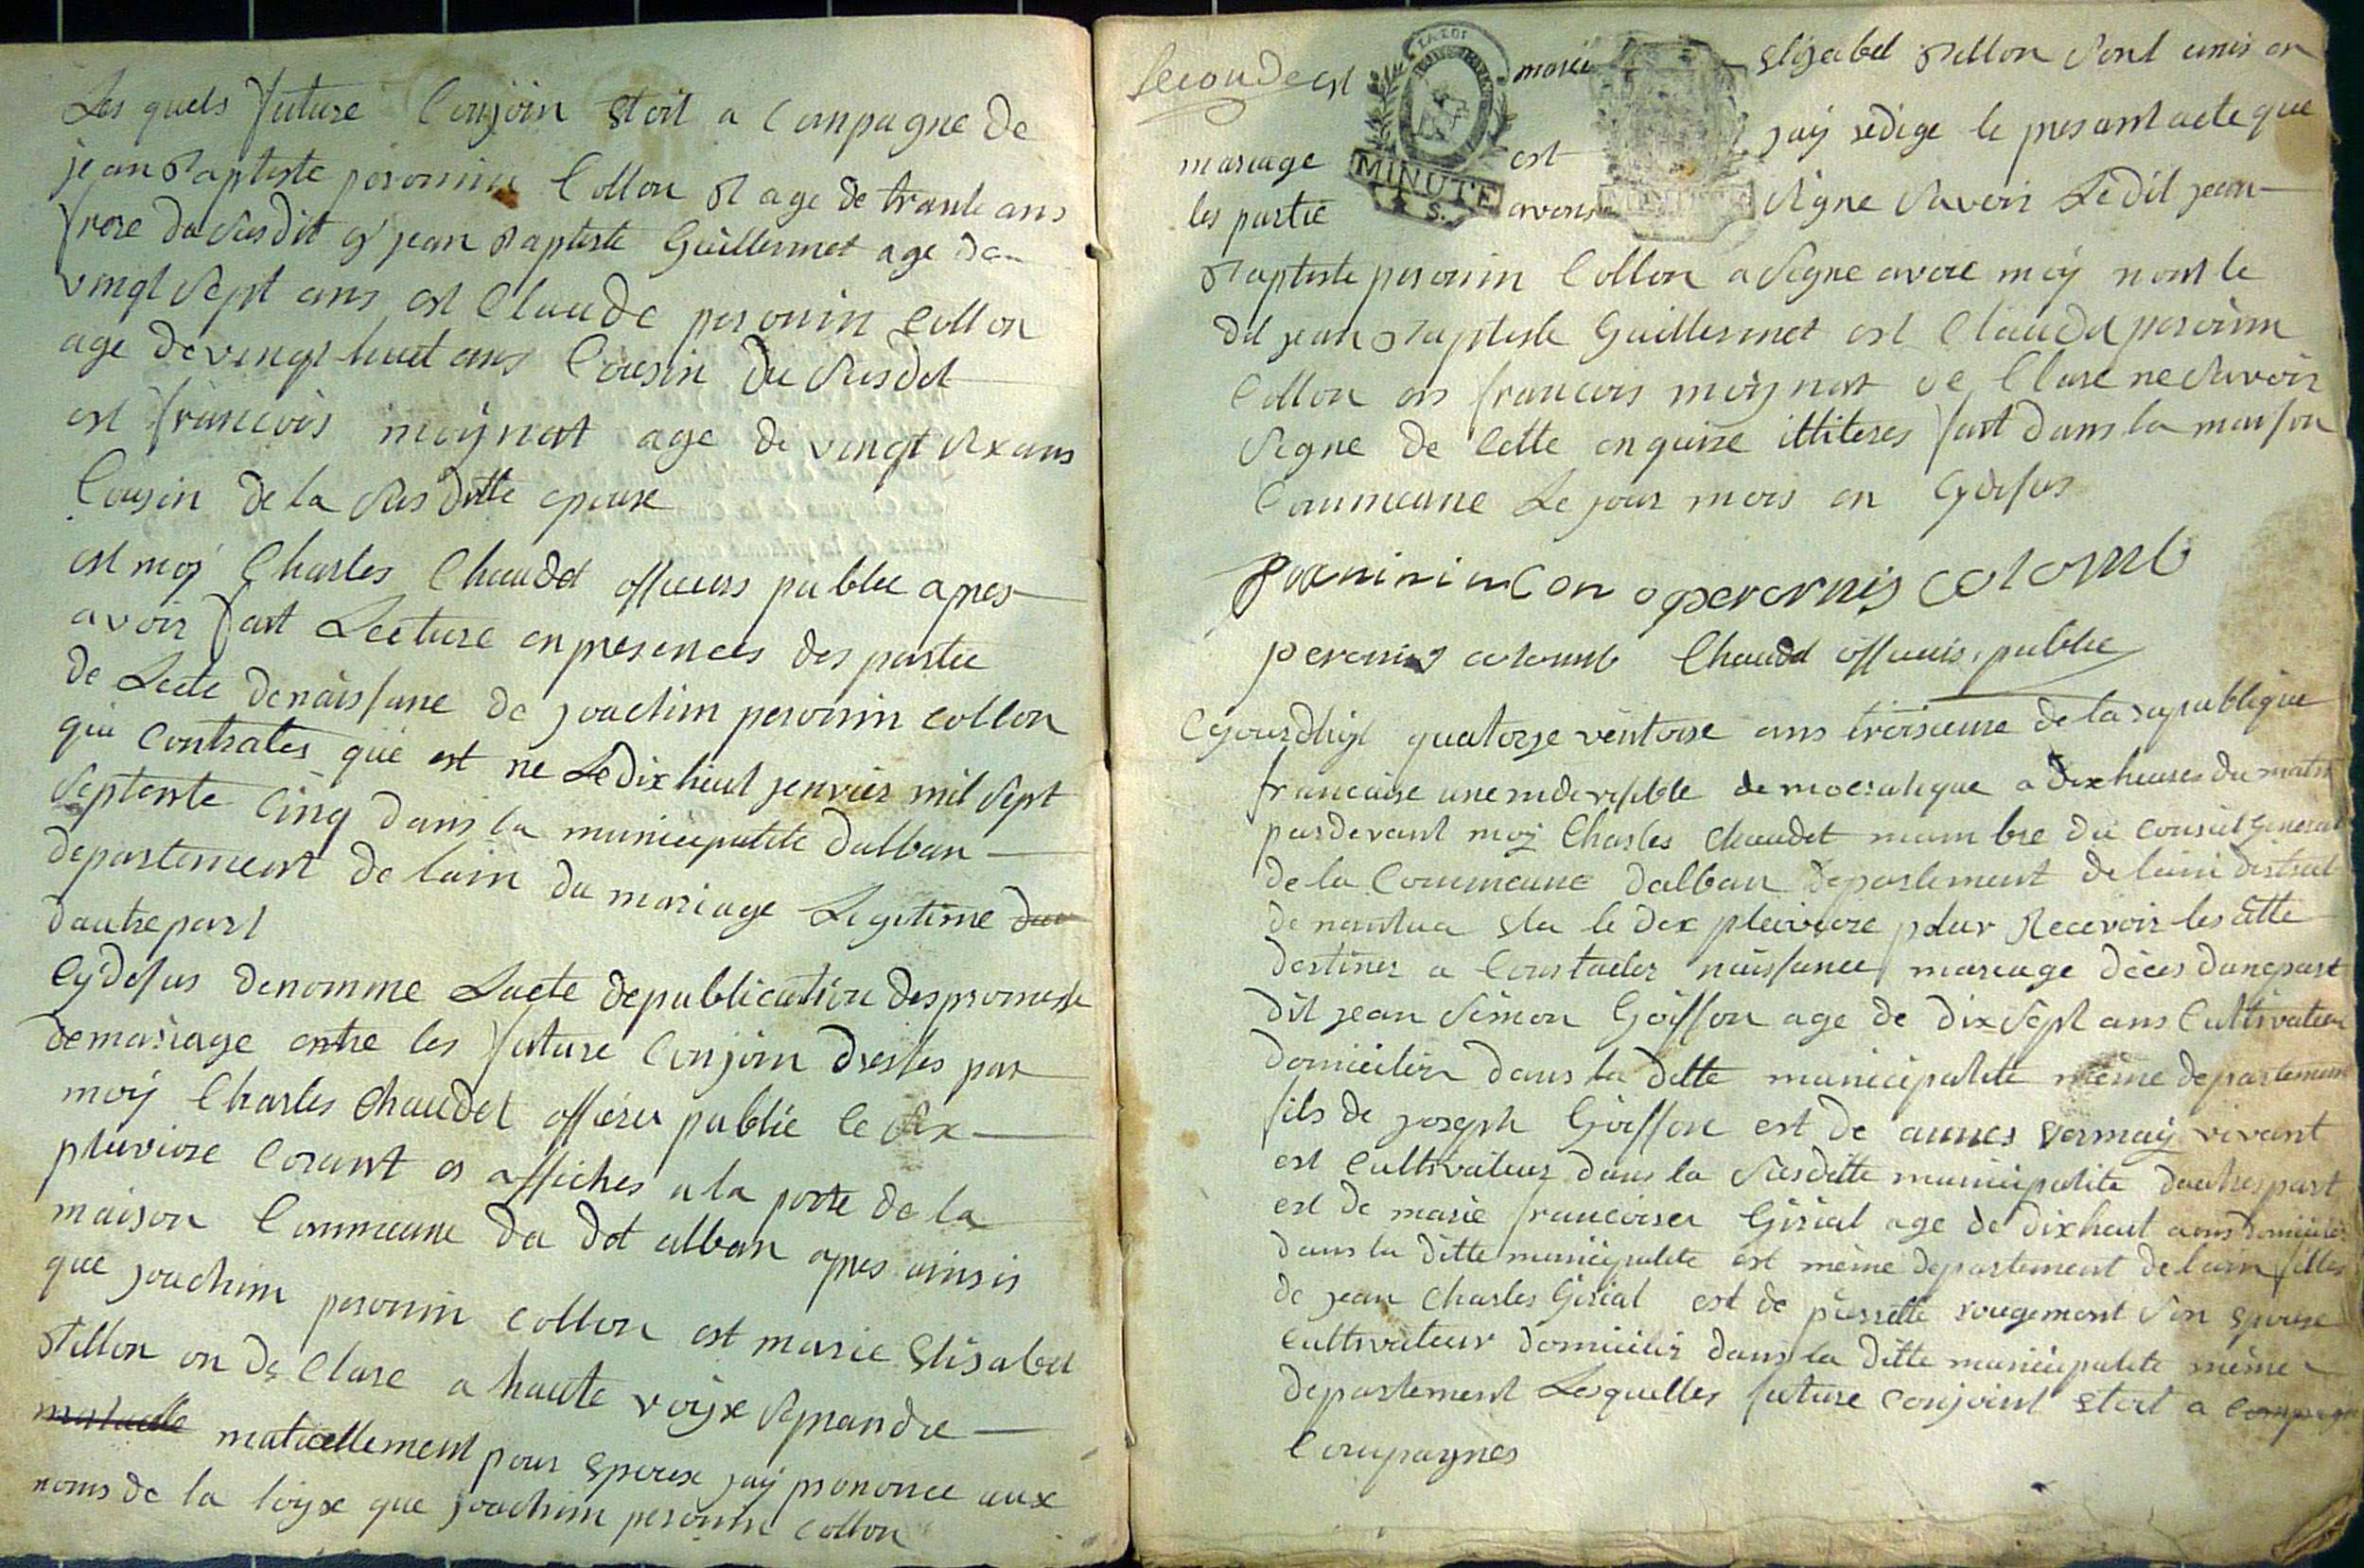 Les quels future Conjoin Etoit a Conpagne de
jean Baptiste peronin Collon B age de trante ans
frere du Susdit & jean Baptiste Guillermet age de
vingt Sept ans est Claude peronin Collon
age de vingt huit ans Cousin du Susdit
est francois moÿnat age de vingt Six ans
Cousin de la Susditte epouse
est moÿ Charles Chaudet officiers public apres
avoir fait Lecture en presences des partie
de Lacte de naissane de joachim peronin collon
qui Contrates que est ne Le dix huit jenvier mil Sept
Septente Cinq dans la municipalite dalban
departement de lain du mariage Legitime
dautre part
Cy desus denomme Lacte de publication des promesse
de mariage entre les future Conjoin dresses par
moÿ Charles Chaudet officier public le dix
pluviose Corant et affiches a la porte de la
maison Commune du dit alban apres ainsis
que joachim peronin collon est marie Elisabet
Billon on de Clare a haute voÿx Seprandre
mutuellement pour Epoux jaÿ prononce aux
noms de la loÿx que joachim peronin collon
Seconde est marie Elizabet Billon Sont unis en
mariage est jaÿ redige le presant acte que
les partie avons Signe Savoir Ledit jean
Baptiste peronin Collon a Signe avere moÿ nont le
dit jean Baptiste Guillermet est Claudet peronin
Collon es francois moÿnat de Clare ne Savoir
Signe de Cette enquise illiteres fait dans la maison
Commune Le jour mois en Cydesus
peronis colomb
peronis colomb Chaudet officis, public
Cejourdhÿ quatorze ventose ans troisieme de la republique
francaise une indivisible democratique a dix heures du matin
pardevant moÿ Charles Chaudet mambre du Conseil General
de la Commune dalban departement de lain distrect
de nantua Elu le dix pluviose pour Recevoir les atte
destines a Constacter naissance mariage déces dune part
dit jean Simon Goiffon age de dix Sept ans Cultivateur
domicilier dans la ditte municipalite même departement
fils de joseph Goiffon est de annes vermaÿ vivant
est Cultivateur dans la Susditte municipalite dautres part
est de marie francoises Girial age de dix huit ans domicilies
dans la ditte municipalite est même departement de lain filles
de jean Charles Girial est de pierrette rougemont Son epouse
Cultivateur domicilir dans la ditte municipalite même
departement Lesquelles future Conjoint Etoit a
Compagnes
MINUTE